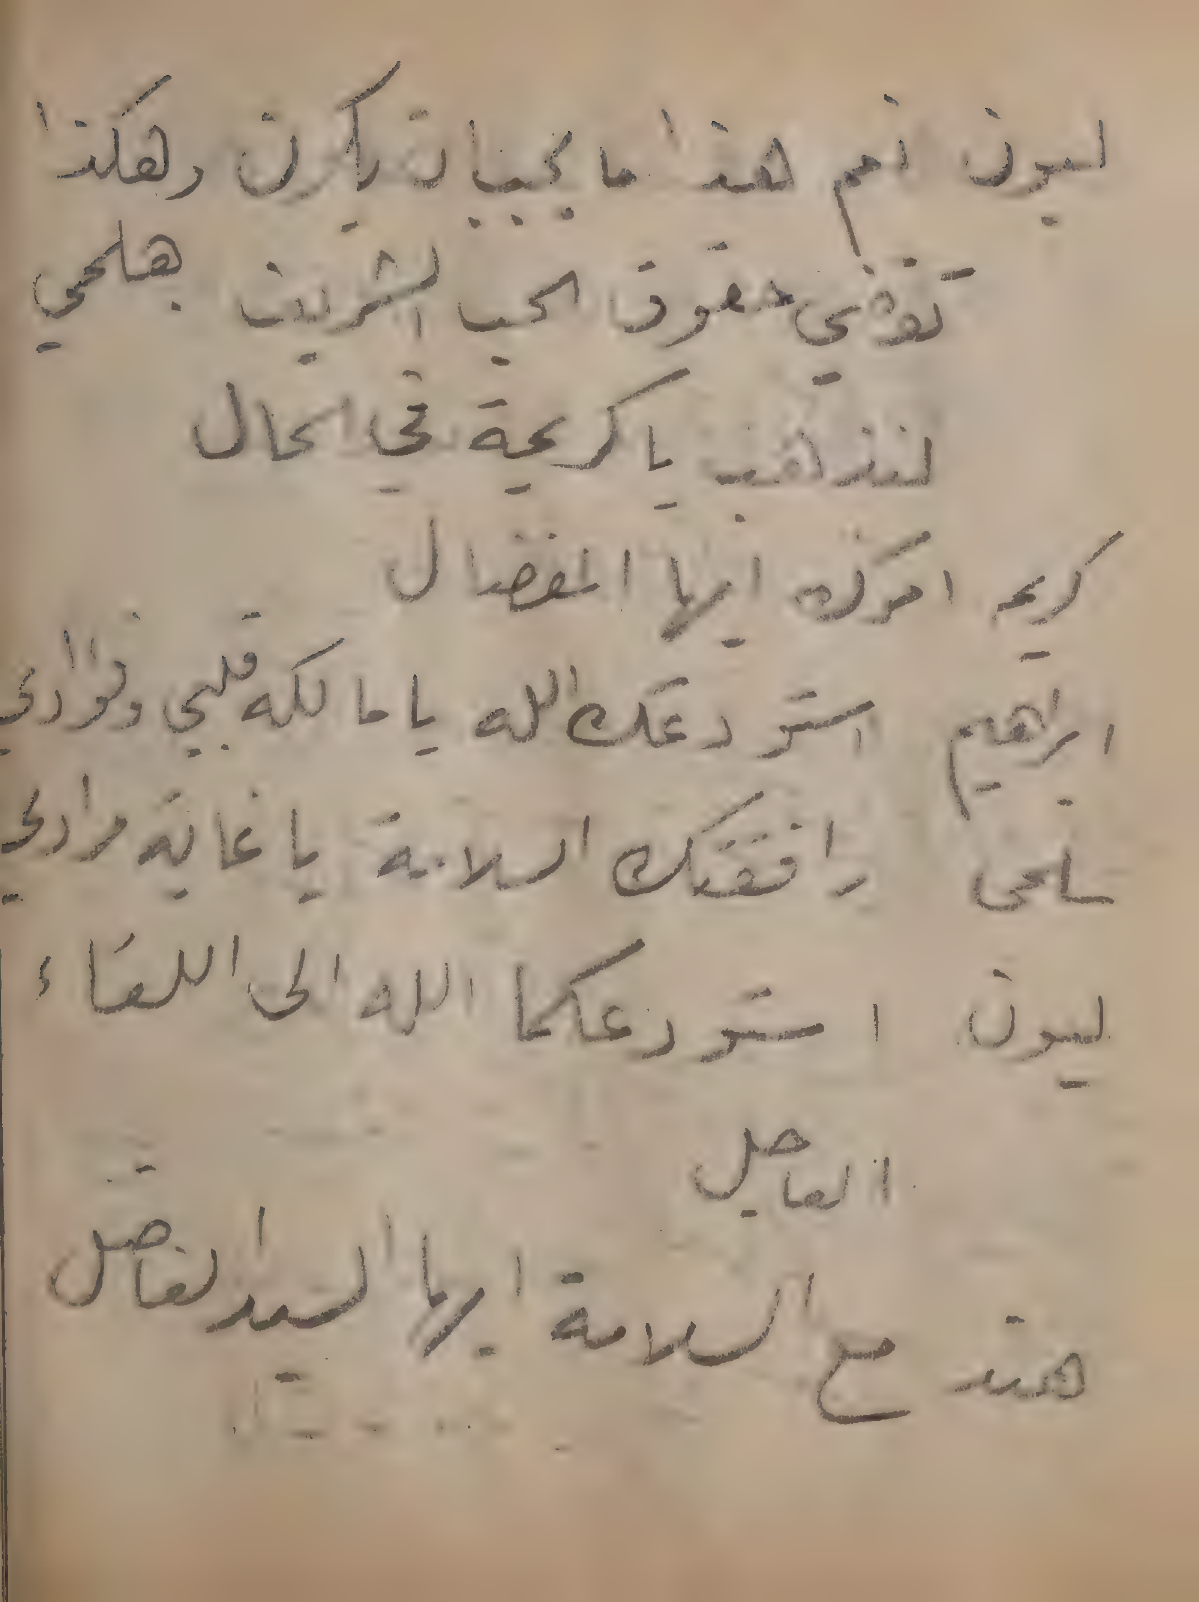 ليون نعم هذا ما يجب ان يكون وهكذا
تقتضي حقوق الحب الشريف
لنذهب يا كريمة في الحال
كريمه امرك ايها المفضال
ابراهيم استودعك الله يا مالكه قلبي وفؤادي
سلمى رافقتك السلامة يا غاية مرادي
ليون استودعكما الله الى اللقاء
الفاضل
هند مع السلامة ايها السيد الفاضل